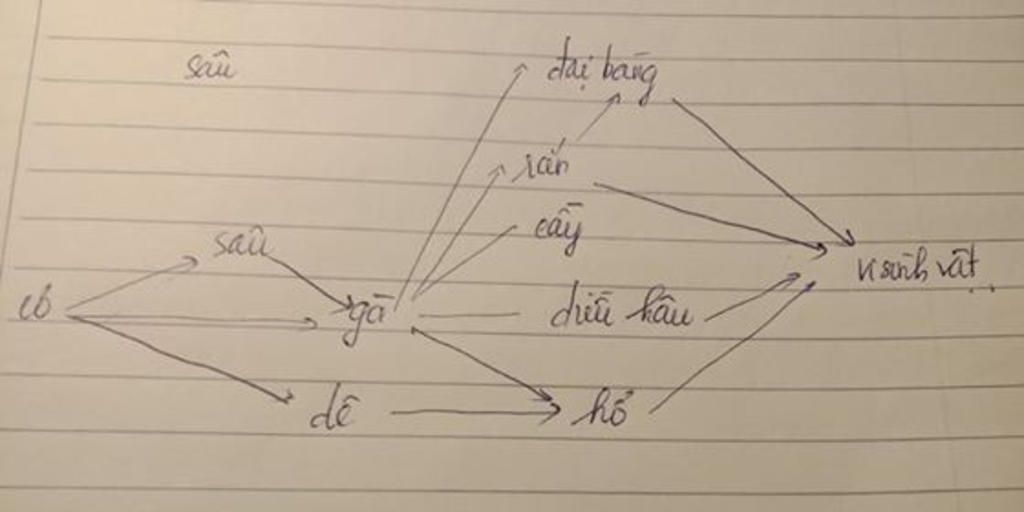 sâu
đại bàng
rắn
cầy
sâu
vi sinh vật
cỏ
gà
diều hâu
dê
hổ